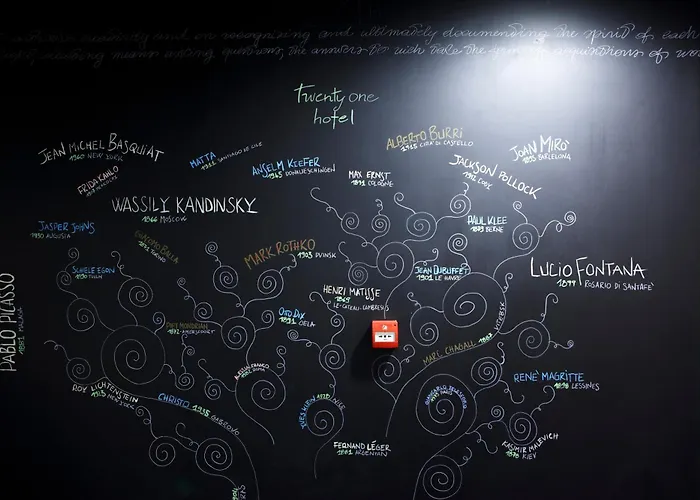 and recognizing and ultimately documenting the spirit of each
asking questions, the answers to
Twenty one
hotel
JEAN MICHEL BASQUIAT
1960 NEW YORK
MATTA
1911 SANTIAGO
ALBERTO BURRI
1915 CITTÀ DI CASTELLO
JOAN MIRÒ
1893 BARLELONA
FRIDA KAHLO
ANSELM KIEFER
1945 DONAUESCHINGEN
MAX ERNST
1891 COLOGNE
JACKSON POLLOCK
1912 CODY
WASSILY KANDINSKY
1866 MOSCOW
PAUL KLEE
1879 BERNE
JASPER JOHNS
1930 AUGUSTA
GIACOMO BALLA
1871 TORINO
MARK ROTHKO
1903 DVINSK
SCHIELE EGON
1890 TULLN
JEAN DUBUFFET
1901 LE HAVRE
LUCIO FONTANA
1899 ROSARIO DI SANTAFÈ
PABLO PICASSO
1881 MALAGA
HENRI MATISSE
1869
LE-CATEAU-CAMBRESIS
OTTO DIX
1891 GERA
PIET MONDRIAN
1872 AMERSFOORT
MARC CHAGALL 1887 VITEBSK
RENÈ MAGRITTE
1898 LESSINES
ROY LICHTENSTEIN
1923 NEW YORK
CHRISTO 1935 GABROVO
YVES KLEIN 1928 NICE
KASIMIR MALEVICH
1878 KIEV
FERNAND LÉGER
1881 ARGENTAN